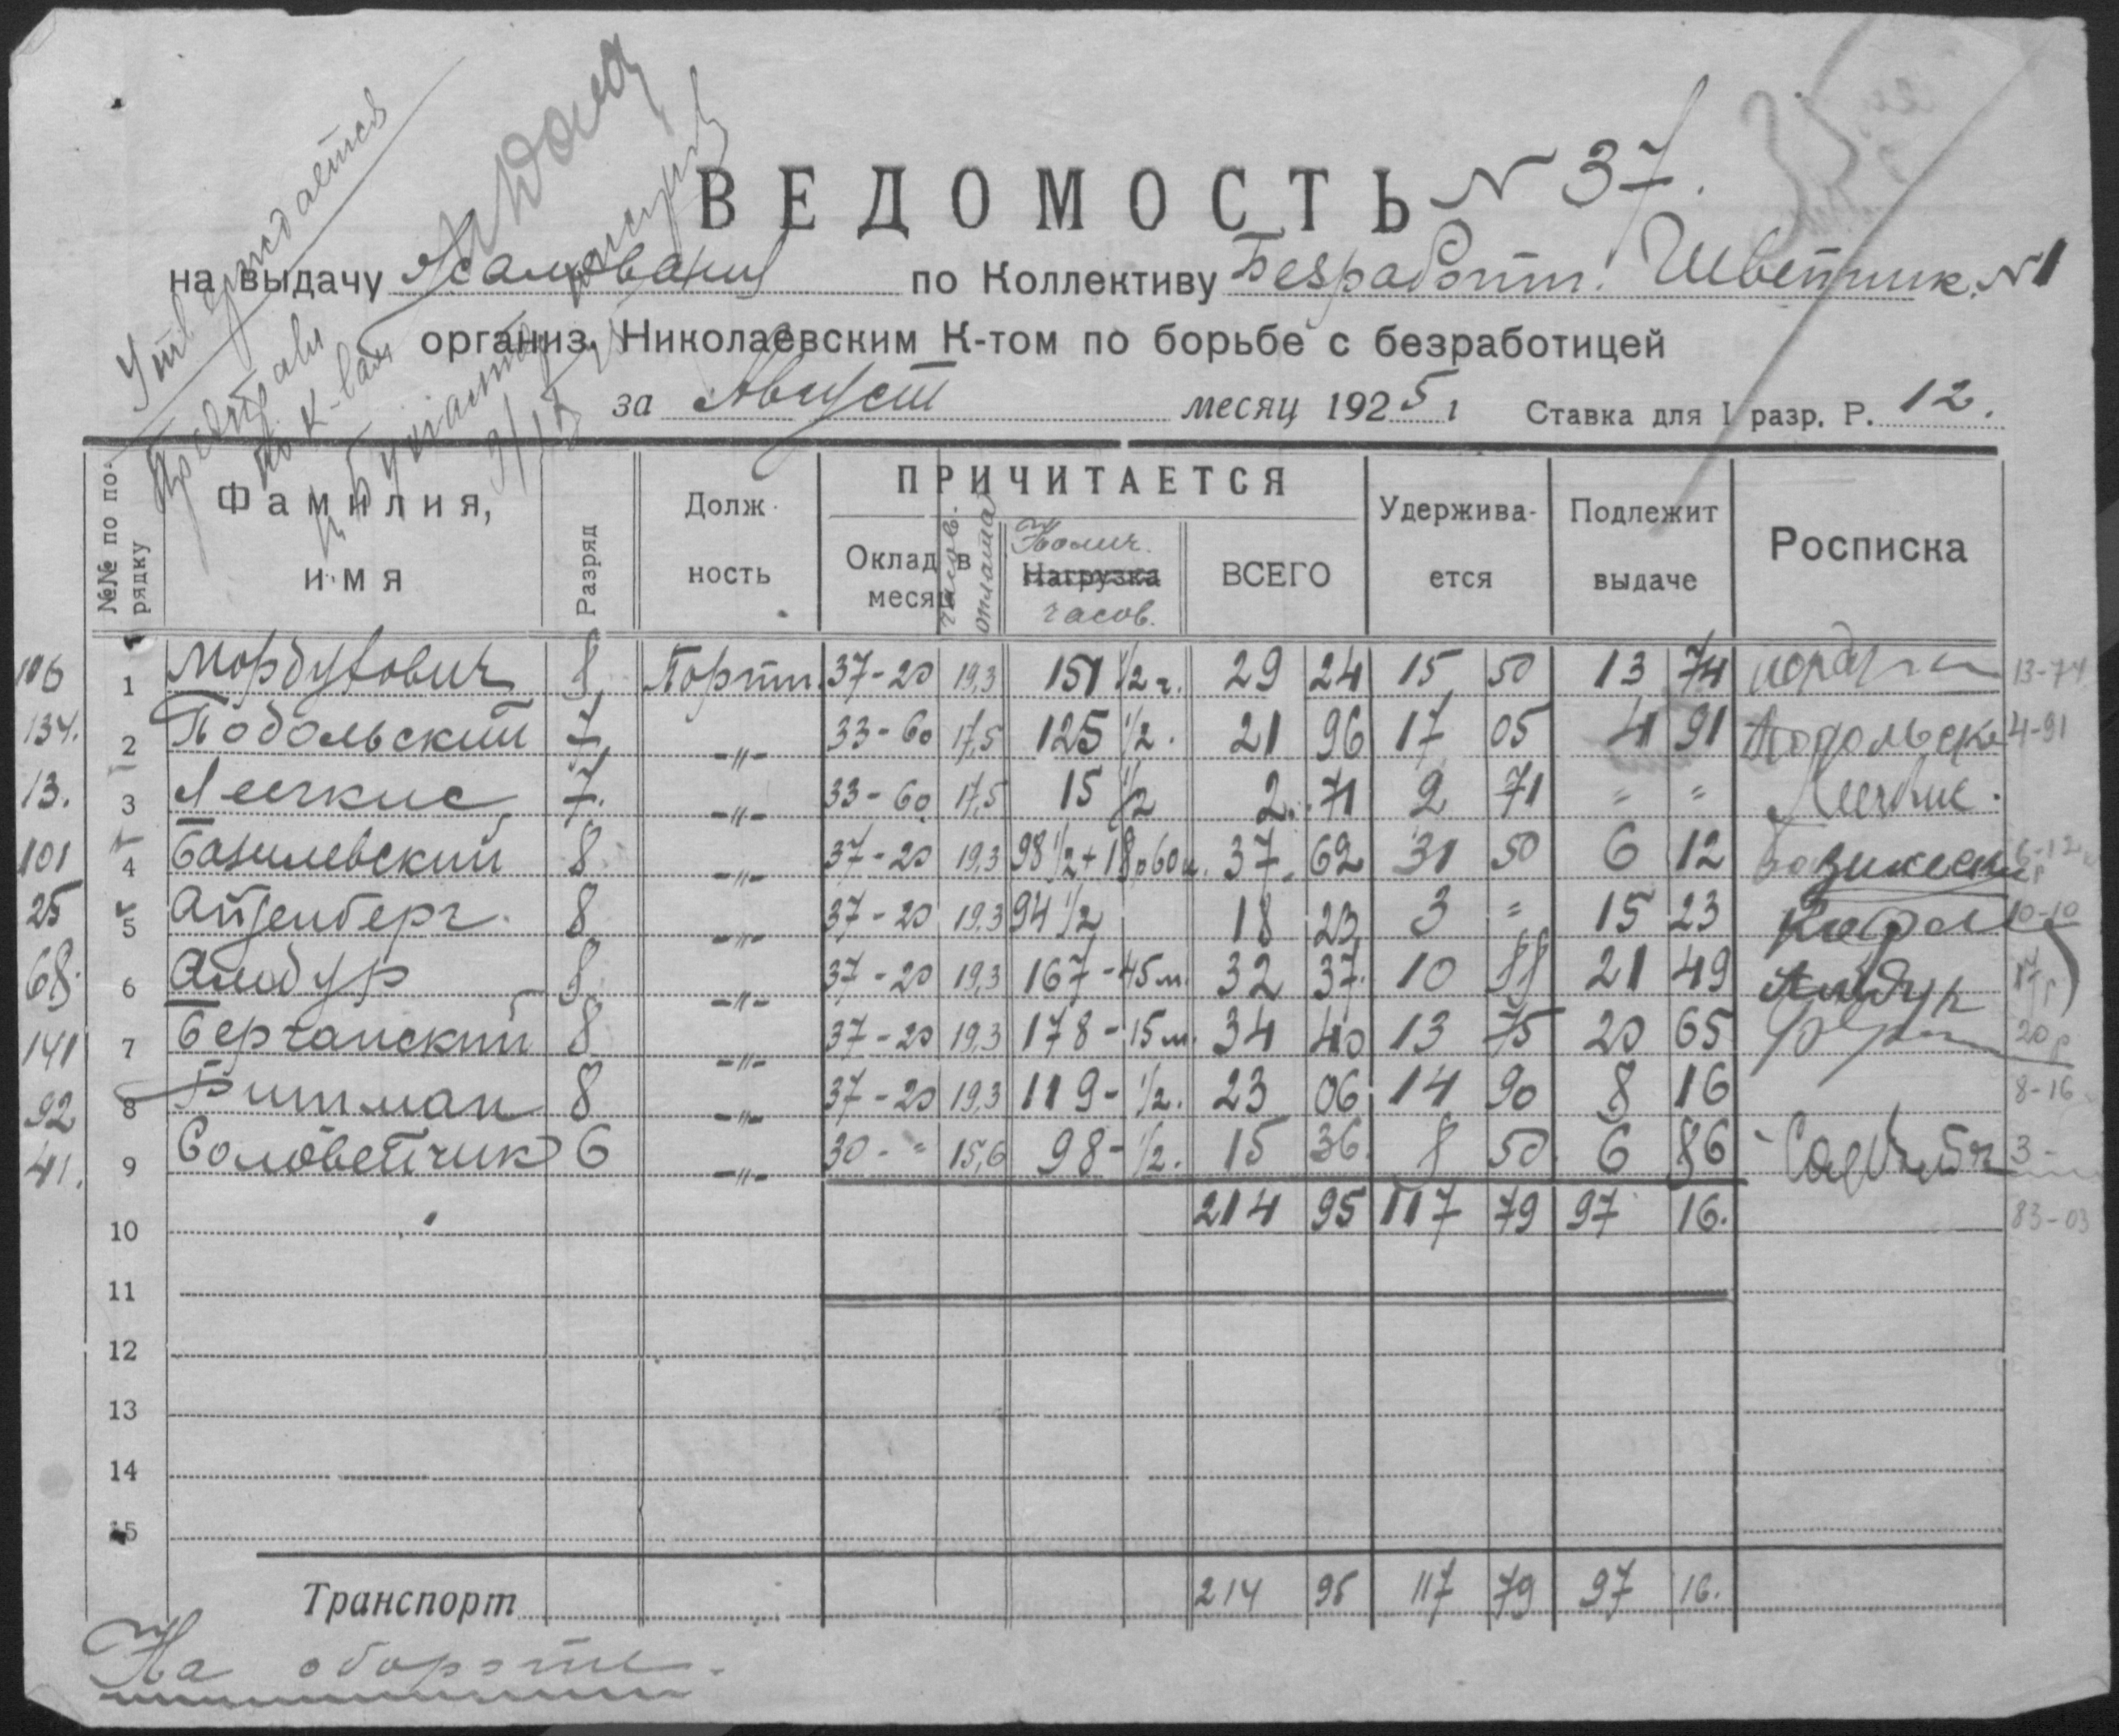 Утверждается
ВЕДОМОСТЬ N 37.
на выдачу Жалования по Коллективу Безработн. Швейник. N1
организ. Николаевским К-том по борьбе с безработицей
за Август месяц 1925 г Ставка для I разр. Р. 12.
№№ по по-рядку Фамилия, имя Разряд Долж-ность ПРИЧИТАЕТСЯ Удержива-ется Подлежит выдаче Росписка
Оклад в месяц часов. оплата Колич. Нагрузка часов. ВСЕГО
106 1 Мордухович 8 Портн. 37-20 19,3 151 1/2 ч. 29 24 15 50 13 74 13-74
134. 2 Подольский 7 -"- 33-60 17,5 125 1/2. 21 96 17 05 4 91 Подольск 4-91
13. 3 Лейкис 7. -"- 33-60 17,5 15 1/2 2. 71 2 71 = = Лейкис.
101 4 Базилевский 8 -"- 37-20 19,3 98 1/2 + 18р60к. 37 62 31 50 6 12 6-12
25 5 Айзенберг. 8 -"- 37-20 19,3 94 1/2 18 23 3 = 15 23 10-10
68. 6 Амбур 8 -"- 37-20 19,3 167-45м. 32 37 10 88 21 49 Амбур 17р
141 7 Берчанский 8 -"- 37-20 19,3 178-15м. 34 40 13 75 20 65 20р
92 8 Битман 8 -"- 37-20 19,3 119-1/2. 23 06 14 90 8 16 8-16
41. 9 Соловейчик 6 -"- 30-" 15,6 98-1/2. 15 36 8 50 6 86 3-
10 214 95 117 79 97 16. 83-03
11
12
13
14
15
Транспорт 214 95 117 79 97 16.
На обороте.